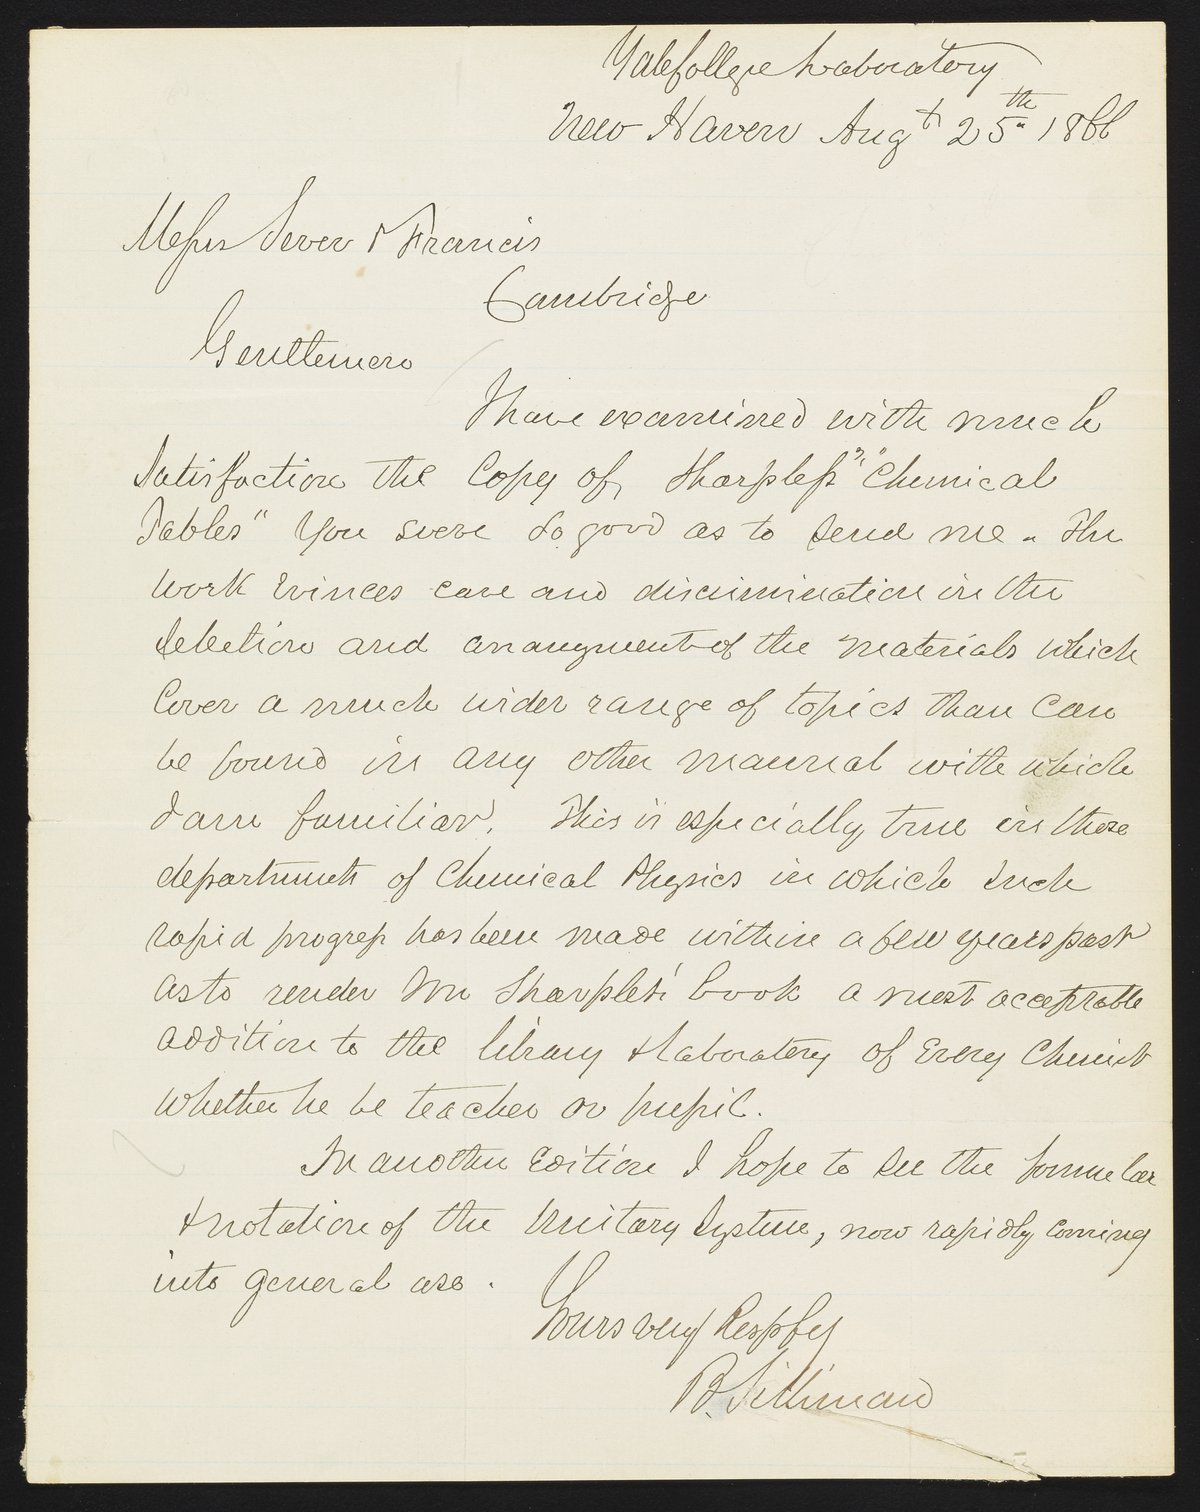 Yale College Laboratory
New Haven Augt 25th 1866
Messrs Sever & Francis
Cambridge
Gentlemen
I have examined with much
Satisfaction the Copy of Sharpless' "Chemical
Tables" You were so good as to send me - The
work Evinces care and discrimination in the
Selection and arrangment of the materials which
Cover a much wider range of topics than Can
be found in any other manual with which
I am familiar. This is especially true in those
departments of Chemical Physics in which Such
rapid progress has been made within a few years past
as to render Mr Sharples' book a most acceptable
addition to the library & laboratory of Every Chemist
whether he be teacher or pupil.
In another Edition I hope to See the formulae
& notation of the Unitary System, now rapidly Coming
into general use.
Yours very Respfly
B. Silliman